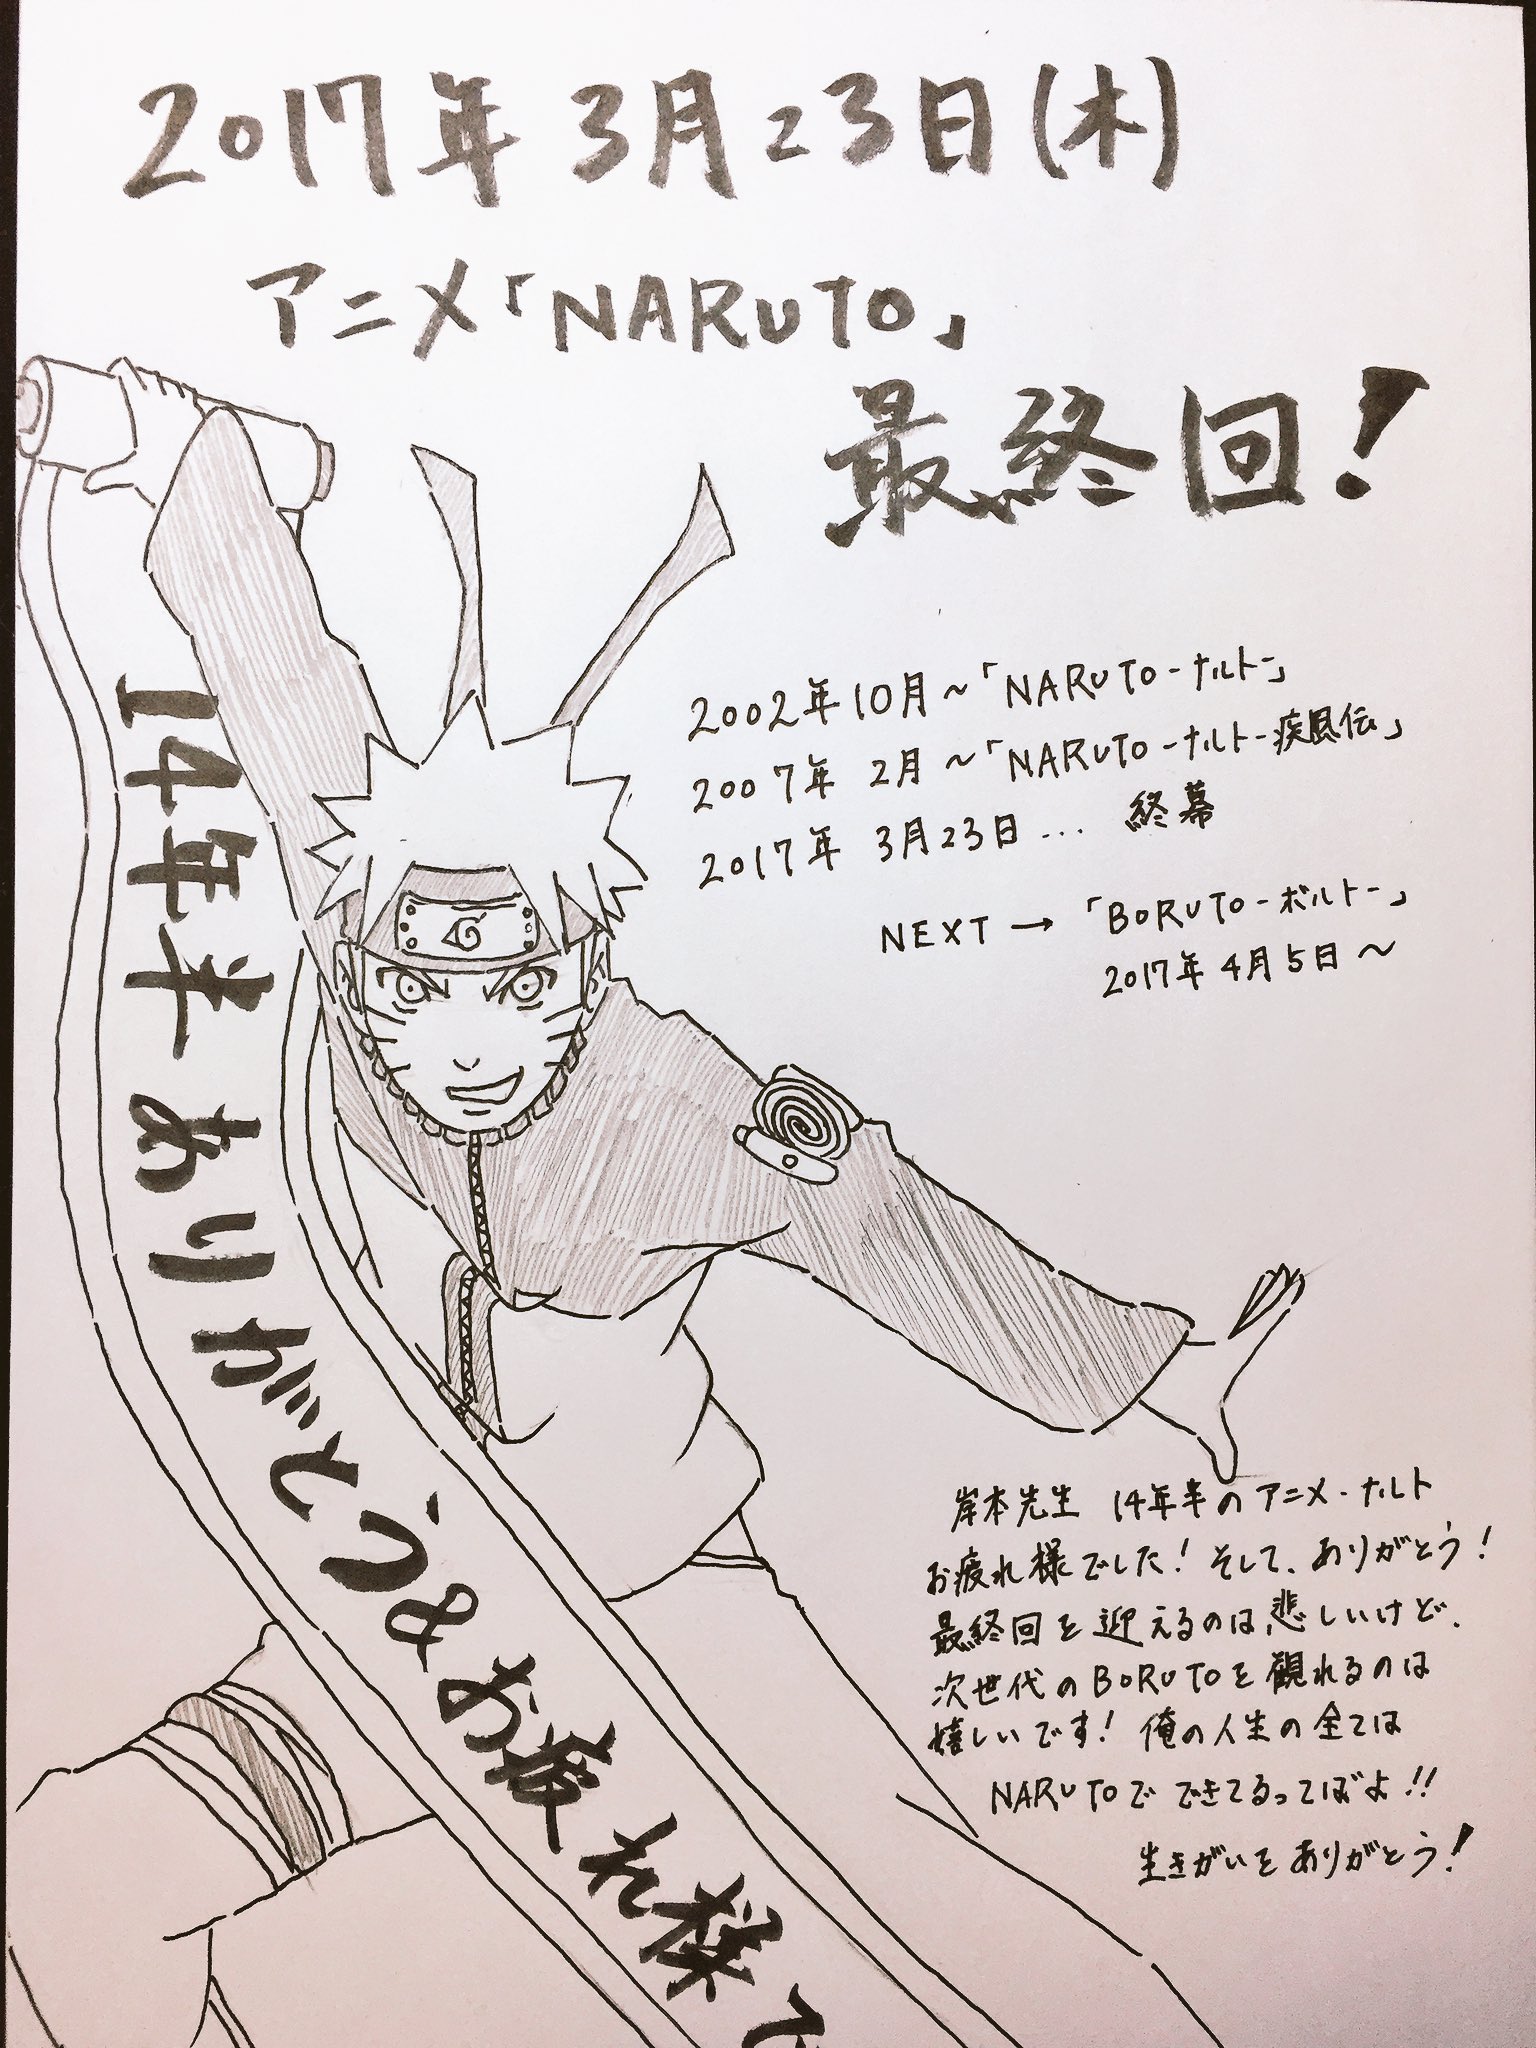 2017年3月23日(木)
アニメ「NARUTO」
最終回!
2002年10月~「NARUTO-ナルト-」
2007年 2月~「NARUTO-ナルト-疾風伝」
2017年 3月23日… 終幕
NEXT→「BORUTO-ボルト-」
2017年4月5日~
14年半ありがとう&お疲れ様で
岸本先生 14年半のアニメ・ナルト
お疲れ様でした!そして、ありがとう!
最終回を迎えるのは悲しいけど、
次世代のBORUTOを観れるのは
嬉しいです!俺の人生の全ては
NARUTOでできてるってばよ!!
生きがいをありがとう!